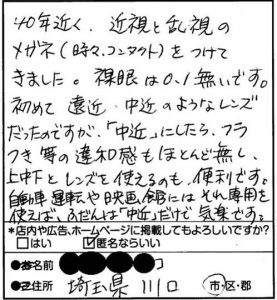 40年近く、近視と乱視の
メガネ(時々、コンタクト)をつけて
きました。裸眼は0.1無いです。
初めて 遠近・中近のようなレンズ
だったのですが、「中近」にしたら、フラ
つき等の違和感もほとんど無し、
上中下とレンズを使えるのも、便利です。
自動車運転や映画館にはそれ専用を
使えば、ふだんは「中近」だけで気楽です。
*店内や広告、ホームページに掲載してもよろしいですか?
□はい ☑匿名ならいい
名前
住所 埼玉県 川口 市・区・郡